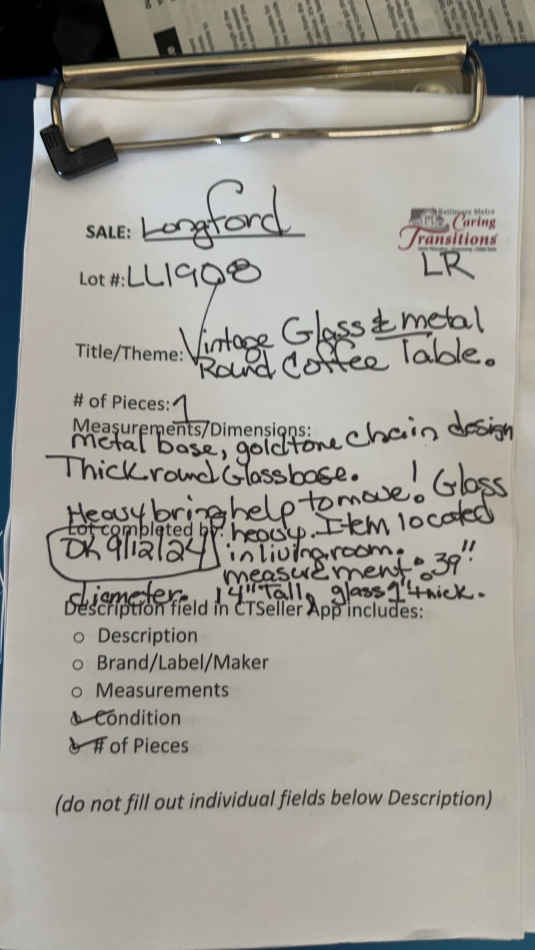 SALE: Longford
Baltimore Metro
Caring
Transitions
LR
Lot #: LL1908
Title/Theme: Vintage Glass & metal
Round Coffee Table.
# of Pieces: 1
Measurements/Dimensions:
metal base, goldtone chain design
Thick round Glass base.
Heavy bring help to move! Glass
Lot completed by: heavy. Item located
Dh 9/12/24 in living room.
measurement: 39"
diameter. 14" Tall, glass 1" thick.
Description field in CTSeller App includes:
○ Description
○ Brand/Label/Maker
○ Measurements
○ Condition
○ # of Pieces
(do not fill out individual fields below Description)